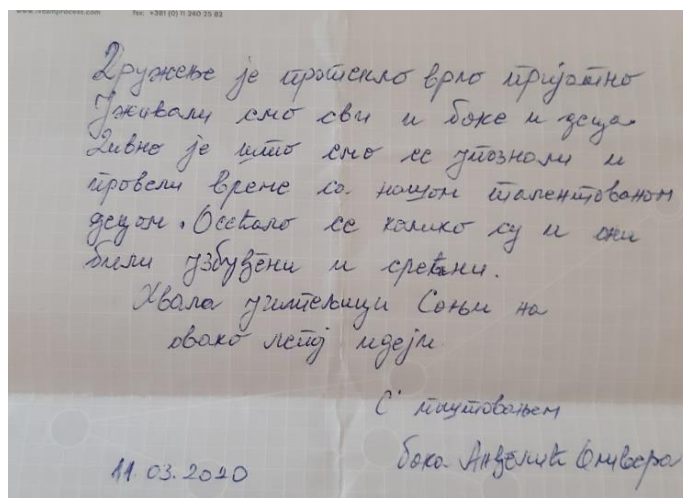 www.ivodinprocess.com fax: +381 (0) 11 240 35 82
Дружење је протекло врло пријатно
Уживали смо сви и баке и деца.
Дивно је што смо се упознали и
провели време са нашом талентованом
децом. Осећало се колико су и они
били узбуђени и срећни.
Хвала учитељици Сањи на
овако лепој идеји.
С поштовањем
бака Анђелић Оливера
11.03.2020